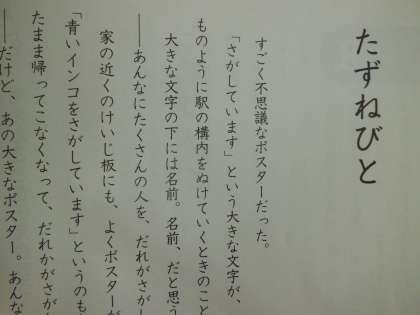 たずねびと
すごく不思議なポスターだった。
「さがしています」という大きな文字が、
ものように駅の構内をぬけていくときのこと
大きな文字の下には名前。名前、だと思う
――あんなにたくさんの人を、だれがさがし
家の近くのけいじ板にも、よくポスターが
「青いインコをさがしています」というのも
たまま帰ってこなくなって、だれかがさが
――だけど、あの大きなポスター。あんな